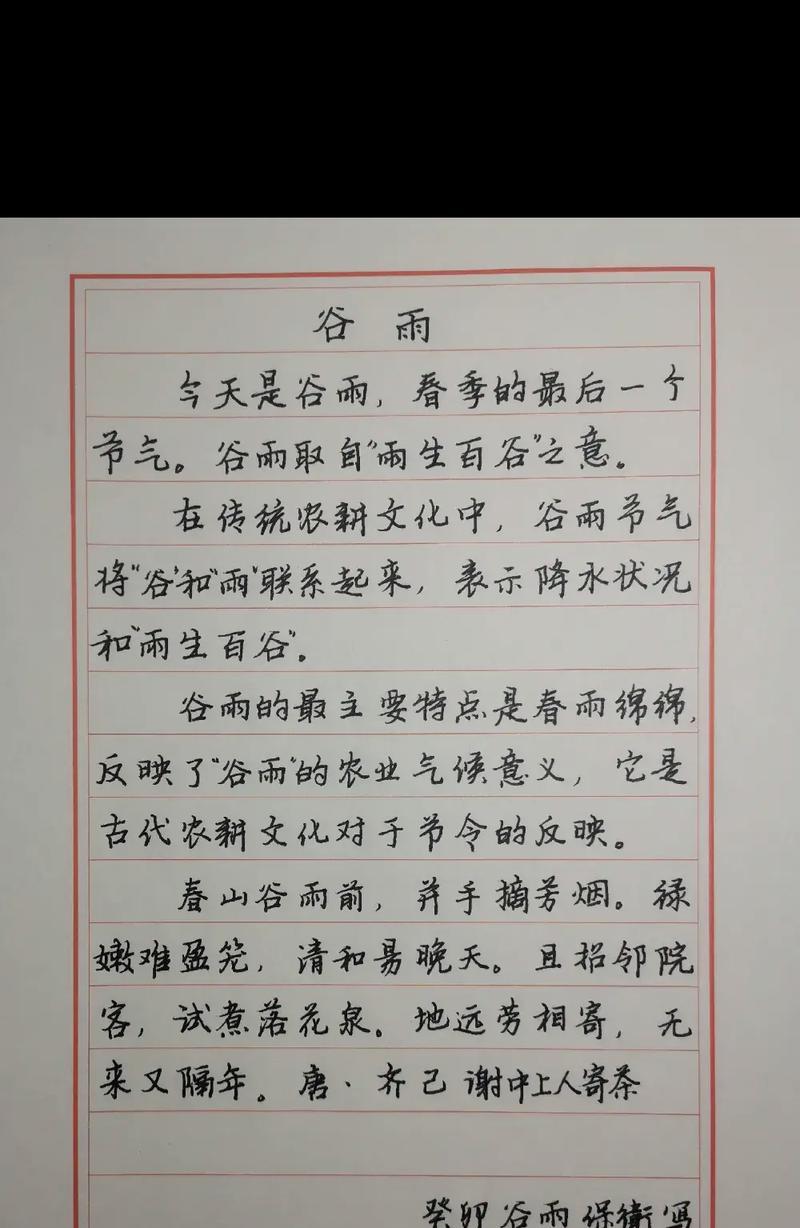 谷雨
今天是谷雨，春季的最后一个
节气。谷雨取自“雨生百谷”之意。
在传统农耕文化中，谷雨节气
将“谷”和“雨”联系起来，表示降水状况
和“雨生百谷”。
谷雨的最主要特点是春雨绵绵，
反映了“谷雨”的农业气候意义，它是
古代农耕文化对于节令的反映。
春山谷雨前，并手摘芳烟。绿
嫩难盈笼，清和易晚天。且招邻院
客，试煮落花泉。地远劳相寄，无
来又隔年。唐·齐己谢中上人寄茶
癸卯谷雨保衡写